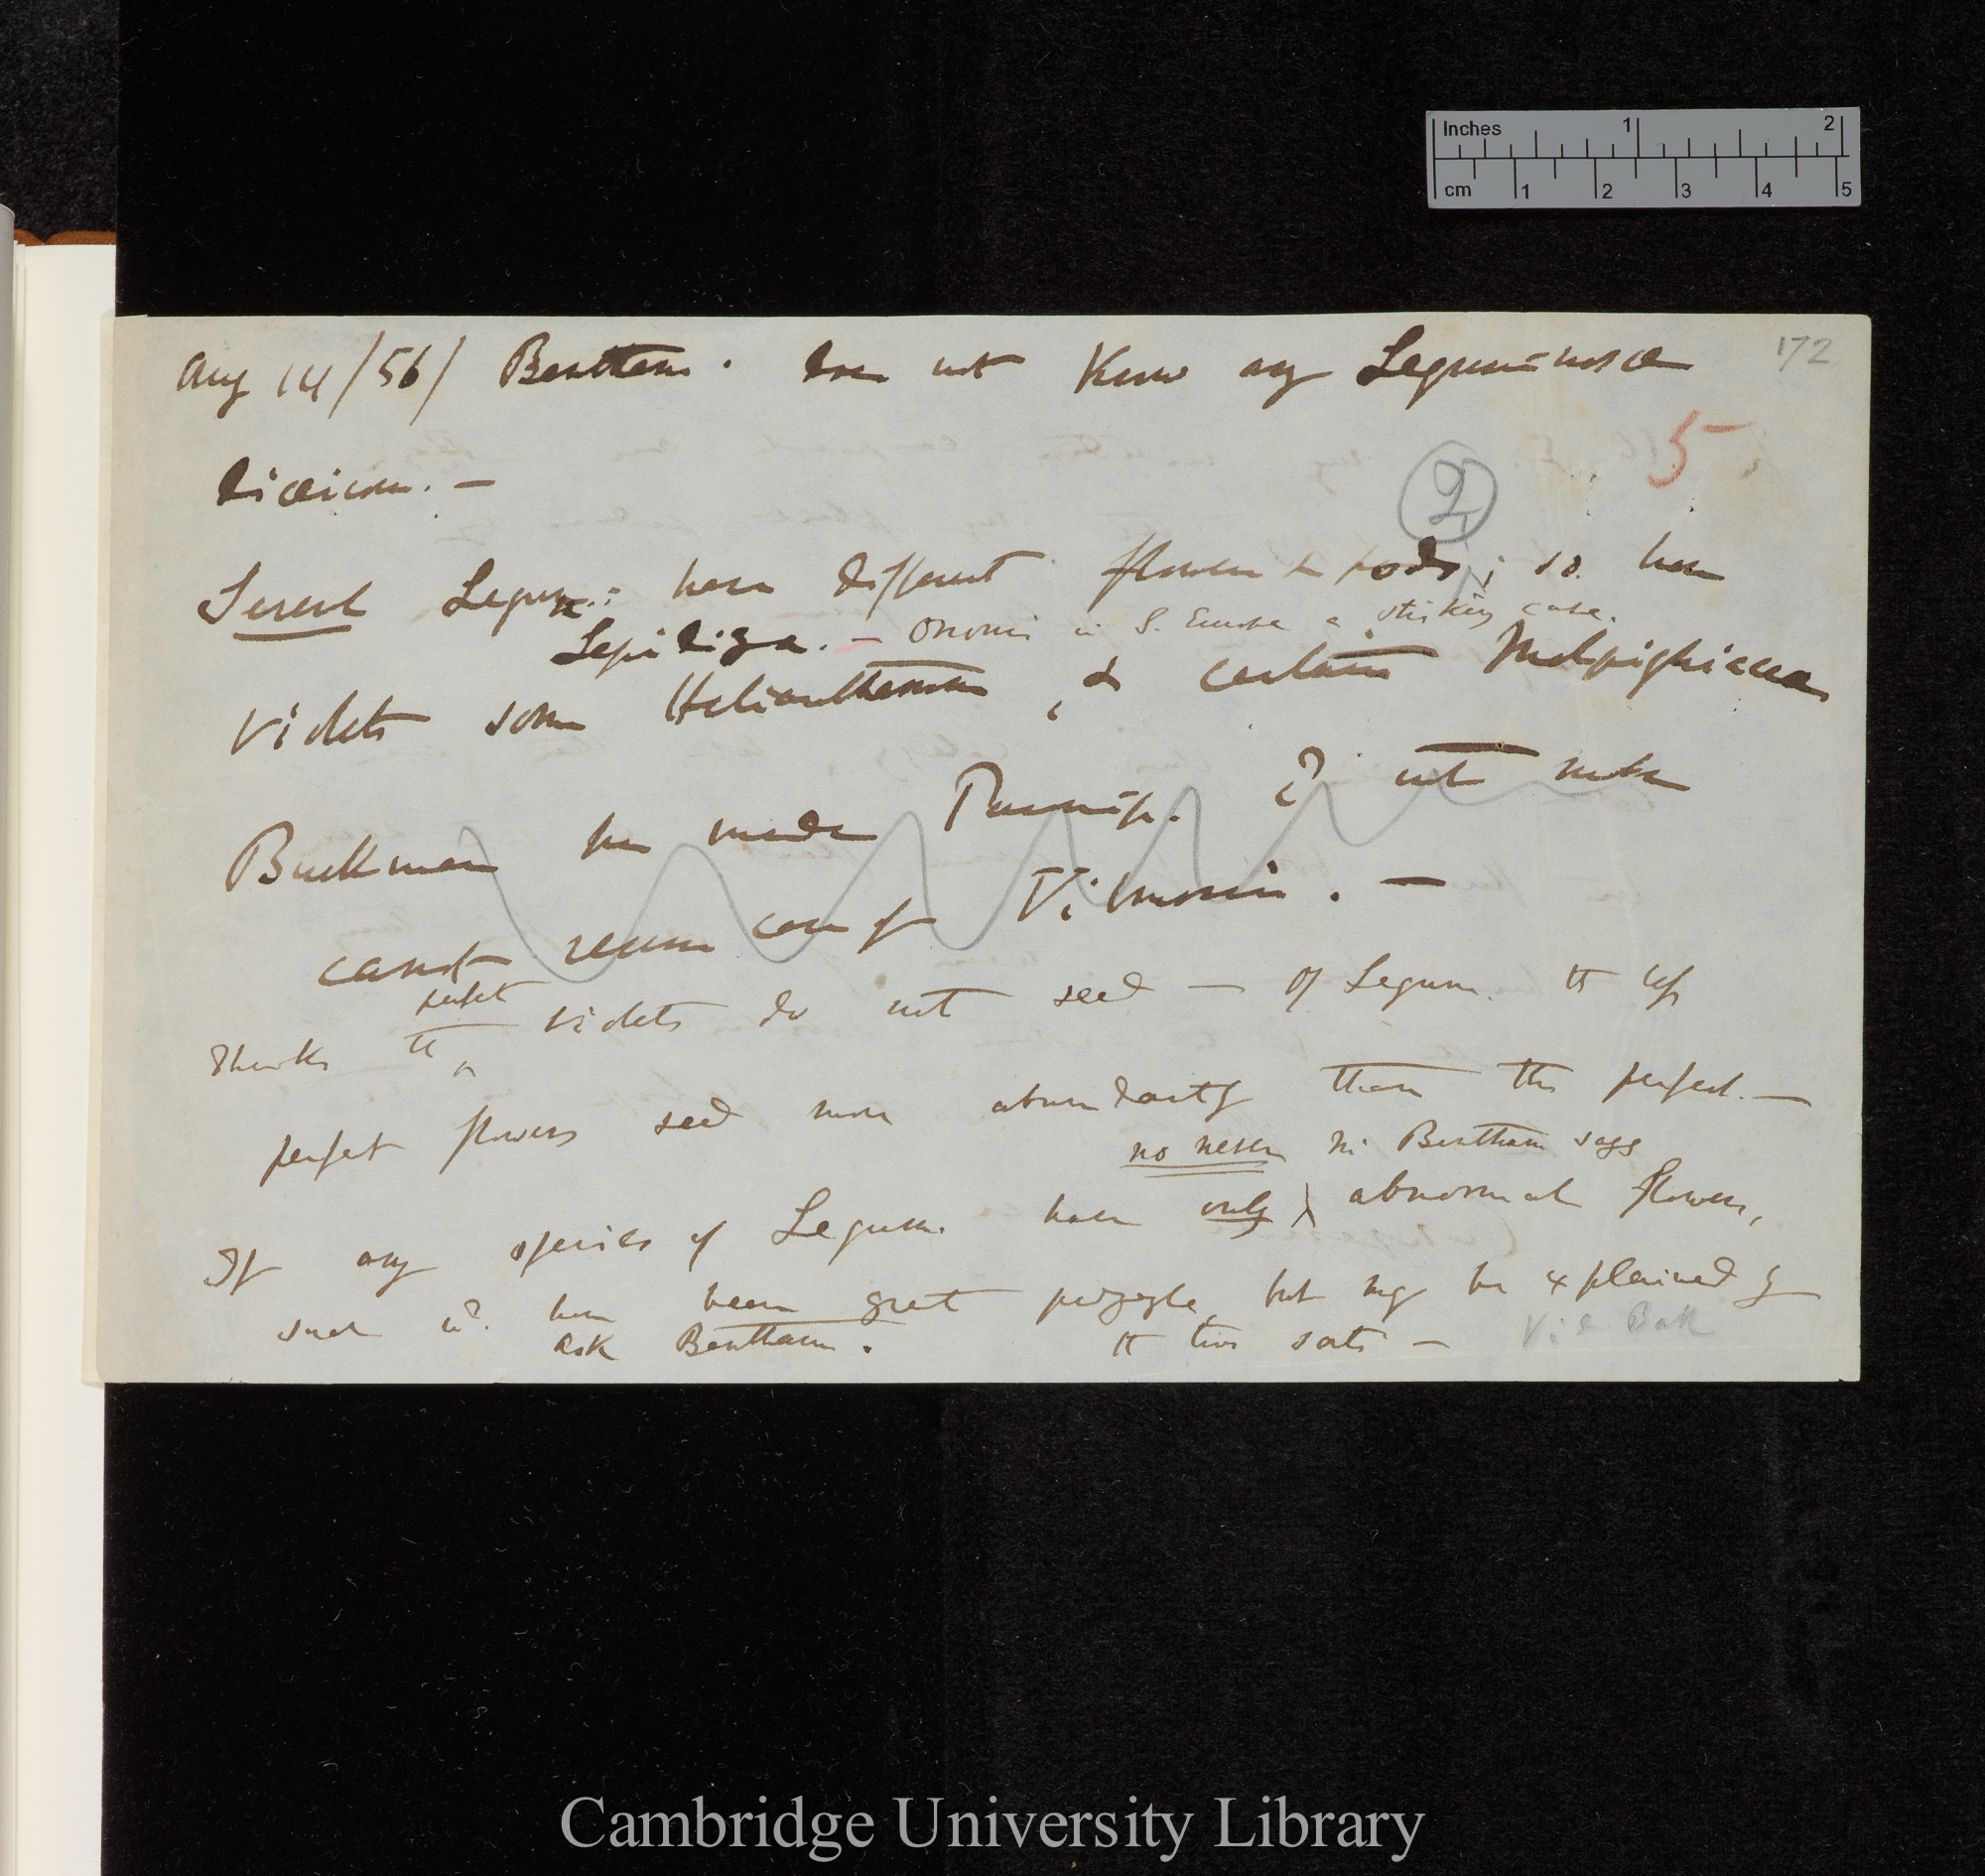 Inches 1 2
cm 1 2 3 4 5
172
Aug 14/56/ Bentham. does not know any Leguminosæ
diœcious. —
5
2
Several Legum: have different flowers & pods; so have
Lespediza. — Ononis in S. Europe a striking case.
Violets some Helianthemum, & certain Malpighiaceæ
Buckman has made Parsnip. ? not make
carrot case of Vilmorin. —
perfect
Thinks the violets do not seed — of Legum. the
perfect flowers seed more abundantly than the perfect. —
no never Mr Bentham says
If any species of Legum. have only abnormal flowers,
such wd. have been great puzzle, but may be explained by
ask Bentham. the two sorts —
Cambridge University Library